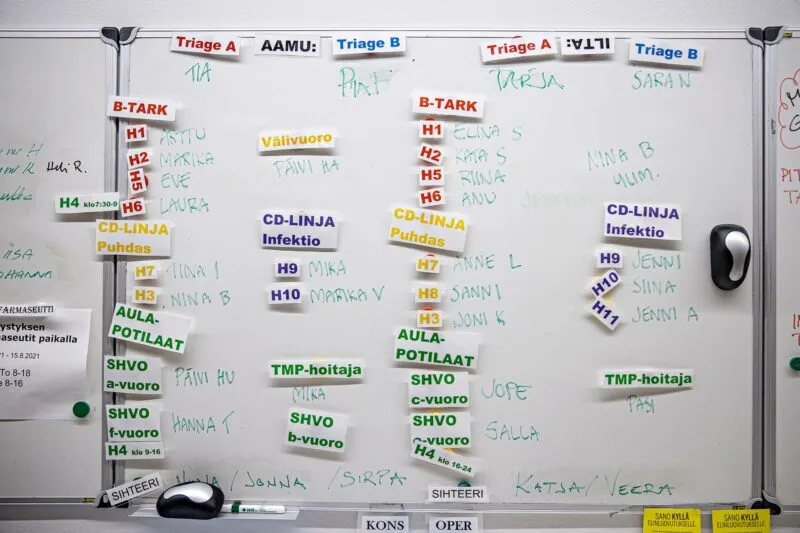 Triage A AAMU: Triage B
TIA PIA F
Triage A ILTA: Triage B
TARJA SARA N
B-TARK
H1 ARTTU
H2 MARIKA
H5 EVE
H6 LAURA
Heli R.
H4 klo7:30-9
Välivuoro
PÄIVI HA
CD-LINJA
Puhdas
H7 TIINA I
H3 NINA B
CD-LINJA
Infektio
H9 MIKA
H10 MARIKA V
AULA-
POTILAAT
SHVO
a-vuoro
PÄIVI HU
SHVO
f-vuoro
H4 klo 9-16
HANNA T
TMP-hoitaja
MIKA
SHVO
b-vuoro
SIHTEERI
/JONNA /SIRPA
B-TARK
H1 ELINA S
H2 KATA S
H5 RIINA
H6 ANU
NINA B
YLIM.
CD-LINJA
Puhdas
H7 ANNE L
H8 SANNI
H3 JONI K
CD-LINJA
Infektio
H9 JENNI
H10 SIINA
H11 JENNI A
AULA-
POTILAAT
SHVO
c-vuoro
JOPE
SHVO
c-vuoro
H4 klo 16-24
SALLA
TMP-hoitaja
PASI
SIHTEERI
KATJA/VEERA
KONS OPER
FARMASEUTTI
paikalla
- 15.8.2021
To 8-18
e 8-16
SANO KYLLÄ
ELINLUOVUTUKSELLE
SANO KYLLÄ
ELINLUOVUTUKSELLE